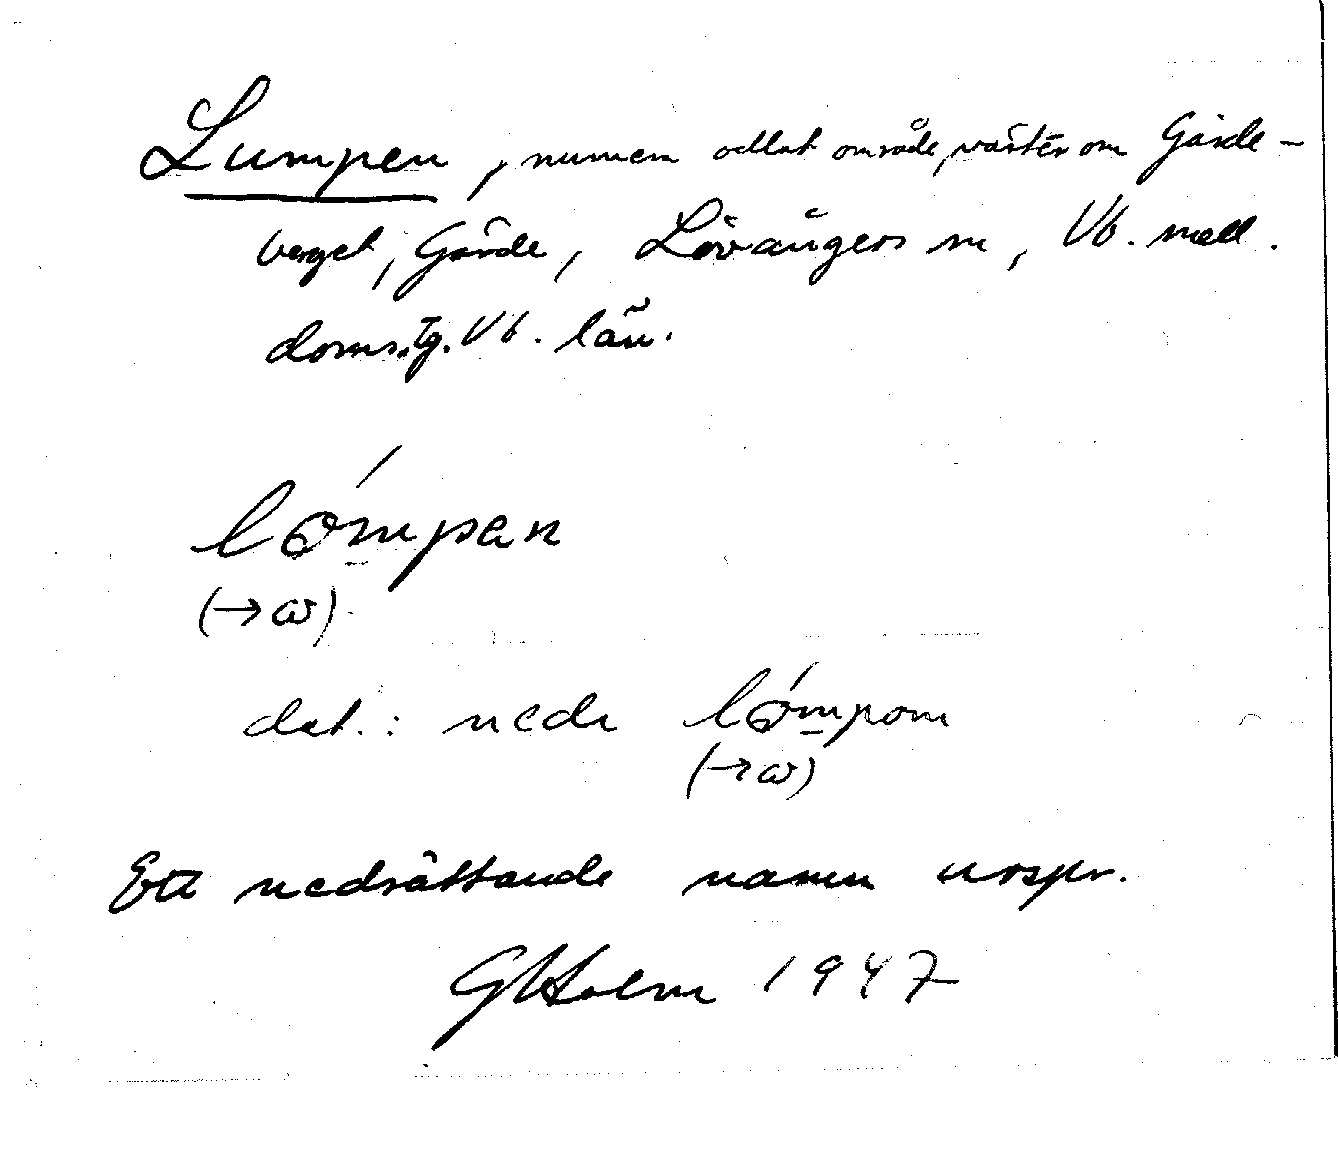 Lumpen, numera odlat område, väster om Gärde-
berget, Gärde, Lövångers sn, Vb. mell.
doms.tg. Vb. län.
lómpan
(→ω)
dat.: nedi lómpom
(→ω)
Ett nedsättande namn urspr.
GHolm 1947